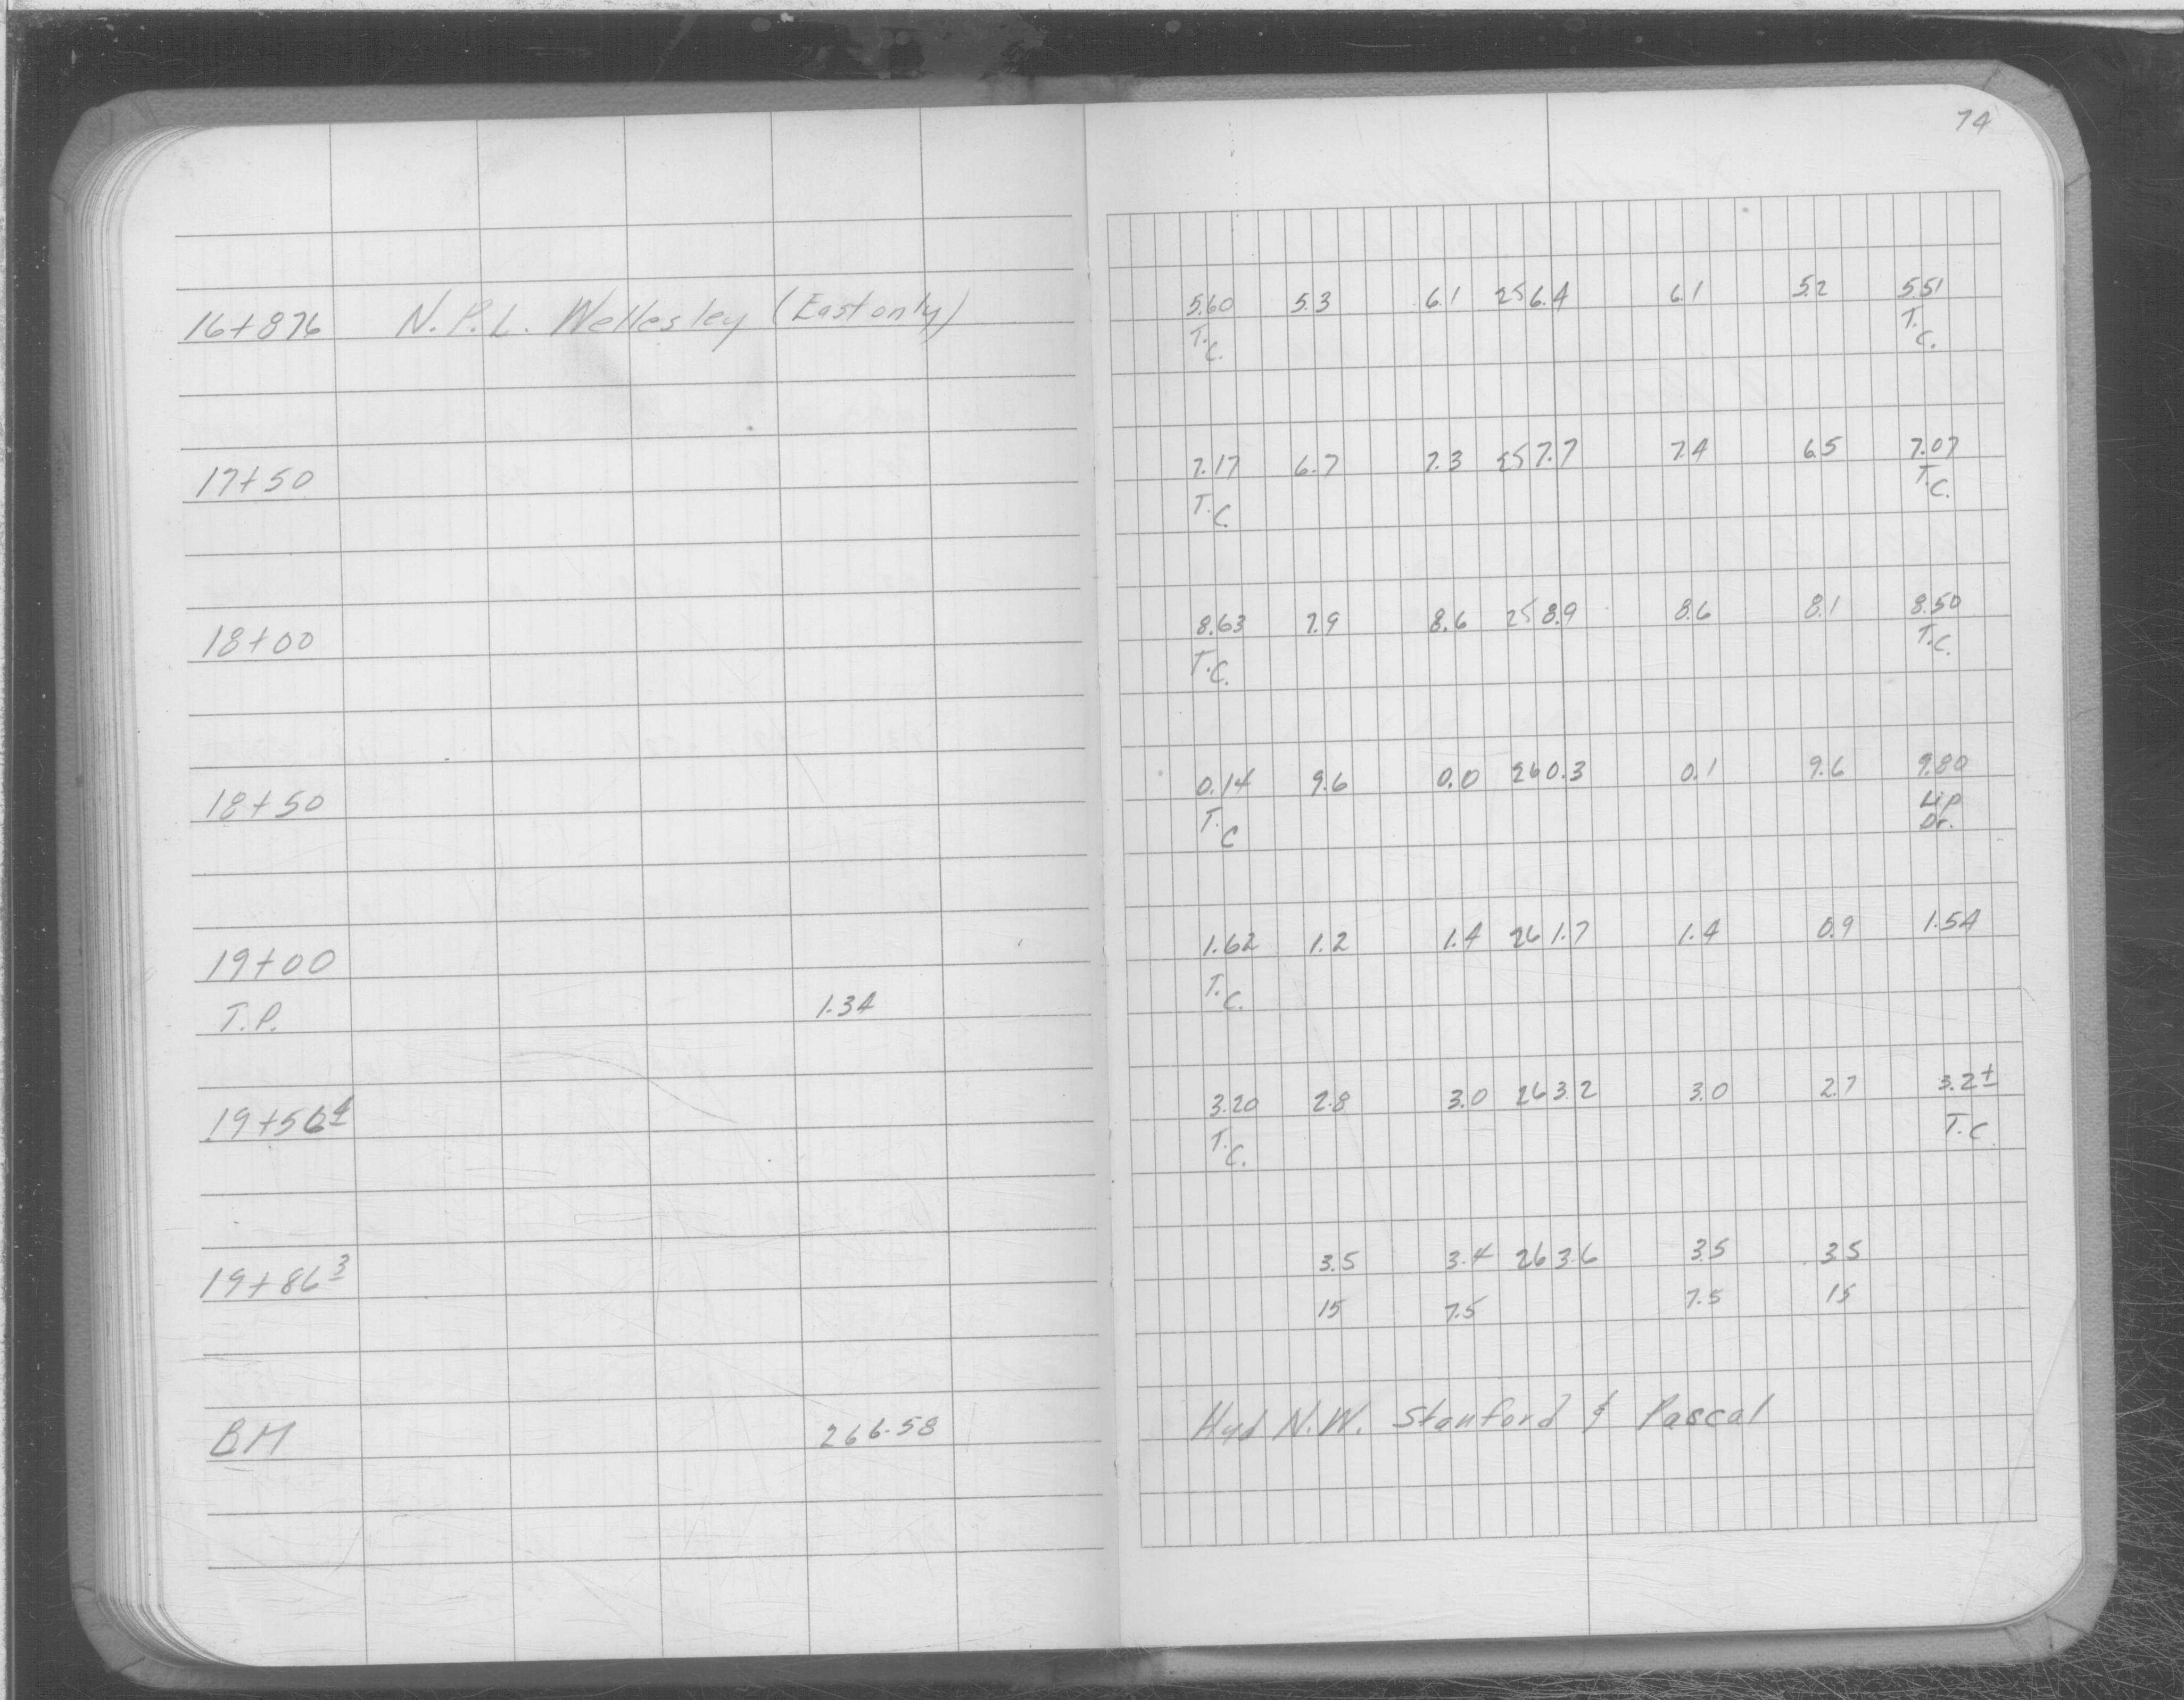 74
16+876 N.P.L. Wellesley (East only) 5.60 5.3 6.1 256.4 6.1 5.2 5.51
T.C. T.C.
17+50 7.17 6.7 7.3 257.7 7.4 6.5 7.07
T.C. T.C.
18+00 8.63 7.9 8.6 258.9 8.6 8.1 8.50
T.C. T.C.
18+50 0.14 9.6 0.0 260.3 0.1 9.6 9.80
T.C Lip
Dr.
19+00 1.62 1.2 1.4 261.7 1.4 0.9 1.54
T.C.
T.P. 1.34
19+56⁴ 3.20 2.8 3.0 263.2 3.0 2.7 3.2±
T.C. T.C.
19+86³ 3.5 3.4 263.6 3.5 3.5
15 7.5 7.5 15
BM 266.58 Hyd N.W. Stanford & Pascal